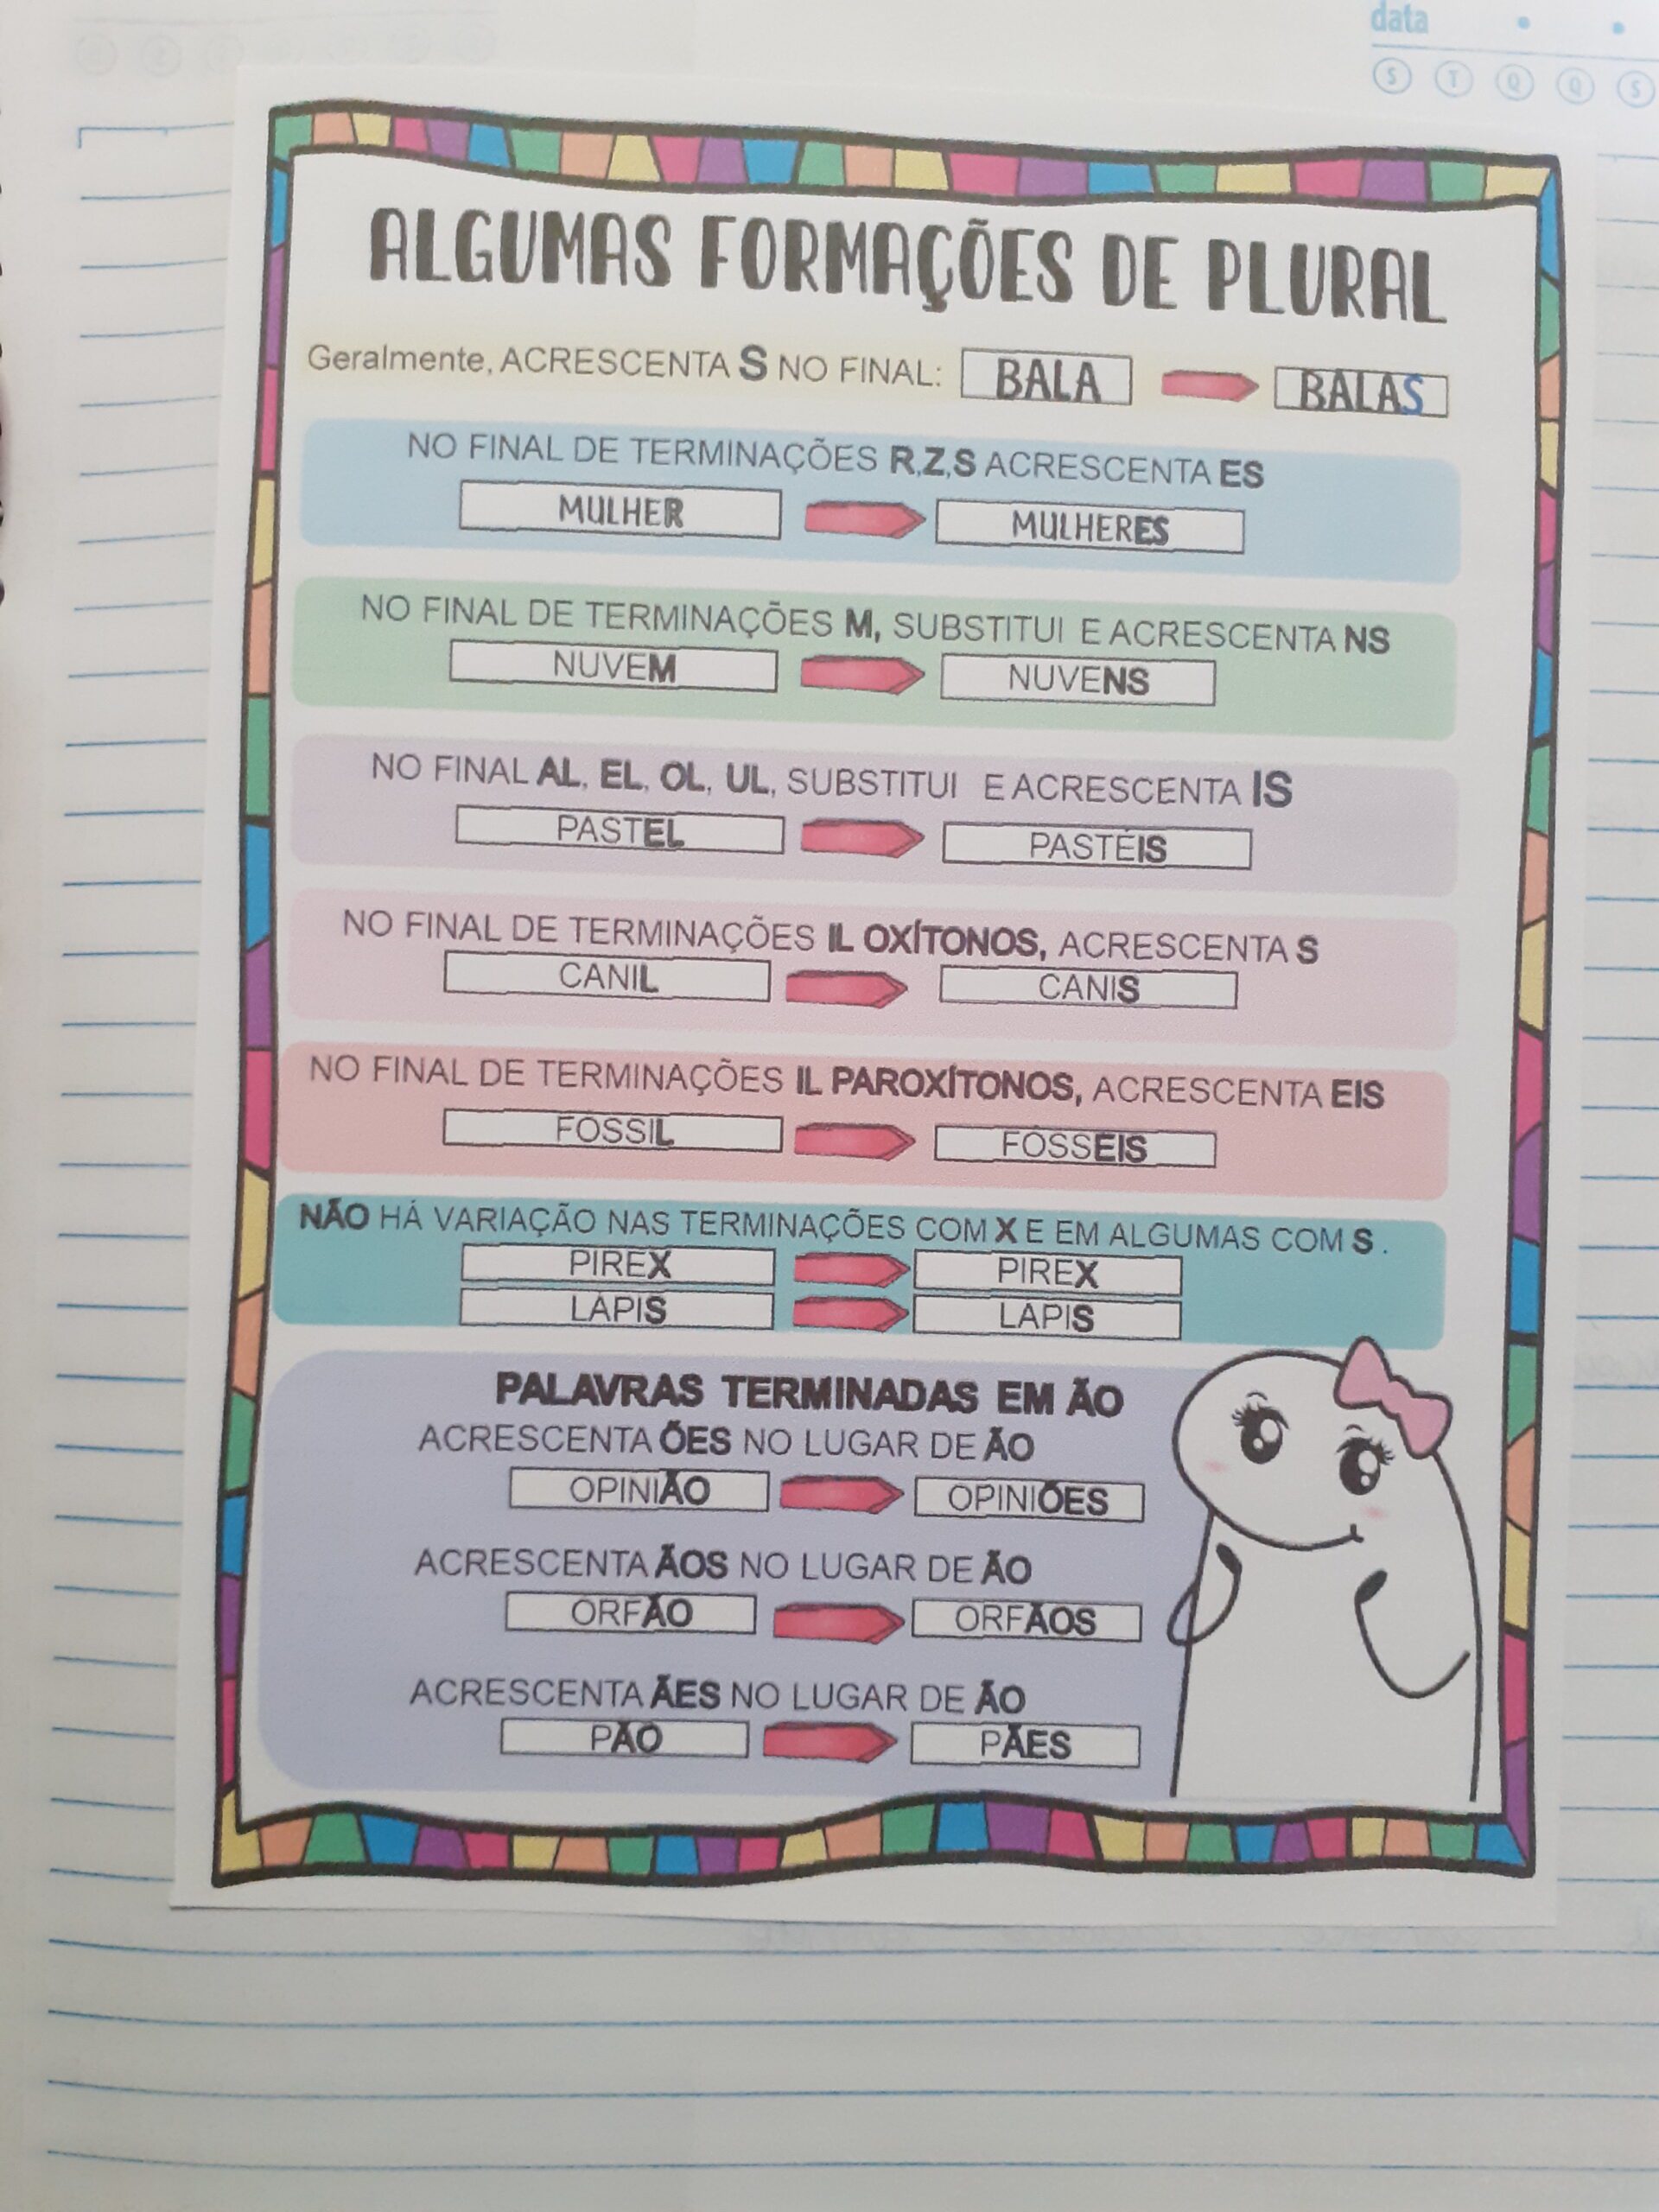 data
S T Q Q S
ALGUMAS FORMAÇÕES DE PLURAL
Geralmente, ACRESCENTA S NO FINAL: BALA BALAS
NO FINAL DE TERMINAÇÕES R,Z,S ACRESCENTA ES
MULHER MULHERES
NO FINAL DE TERMINAÇÕES M, SUBSTITUI E ACRESCENTA NS
NUVEM NUVENS
NO FINAL AL, EL, OL, UL, SUBSTITUI E ACRESCENTA IS
PASTEL PASTÉIS
NO FINAL DE TERMINAÇÕES IL OXÍTONOS, ACRESCENTA S
CANIL CANIS
NO FINAL DE TERMINAÇÕES IL PAROXÍTONOS, ACRESCENTA EIS
FÓSSIL FÓSSEIS
NÃO HÁ VARIAÇÃO NAS TERMINAÇÕES COM X E EM ALGUMAS COM S .
PIREX PIREX
LÁPIS LÁPIS
PALAVRAS TERMINADAS EM ÃO
ACRESCENTA ÕES NO LUGAR DE ÃO
OPINIÃO OPINIÕES
ACRESCENTA ÃOS NO LUGAR DE ÃO
ÓRFÃO ÓRFÃOS
ACRESCENTA ÃES NO LUGAR DE ÃO
PÃO PÃES